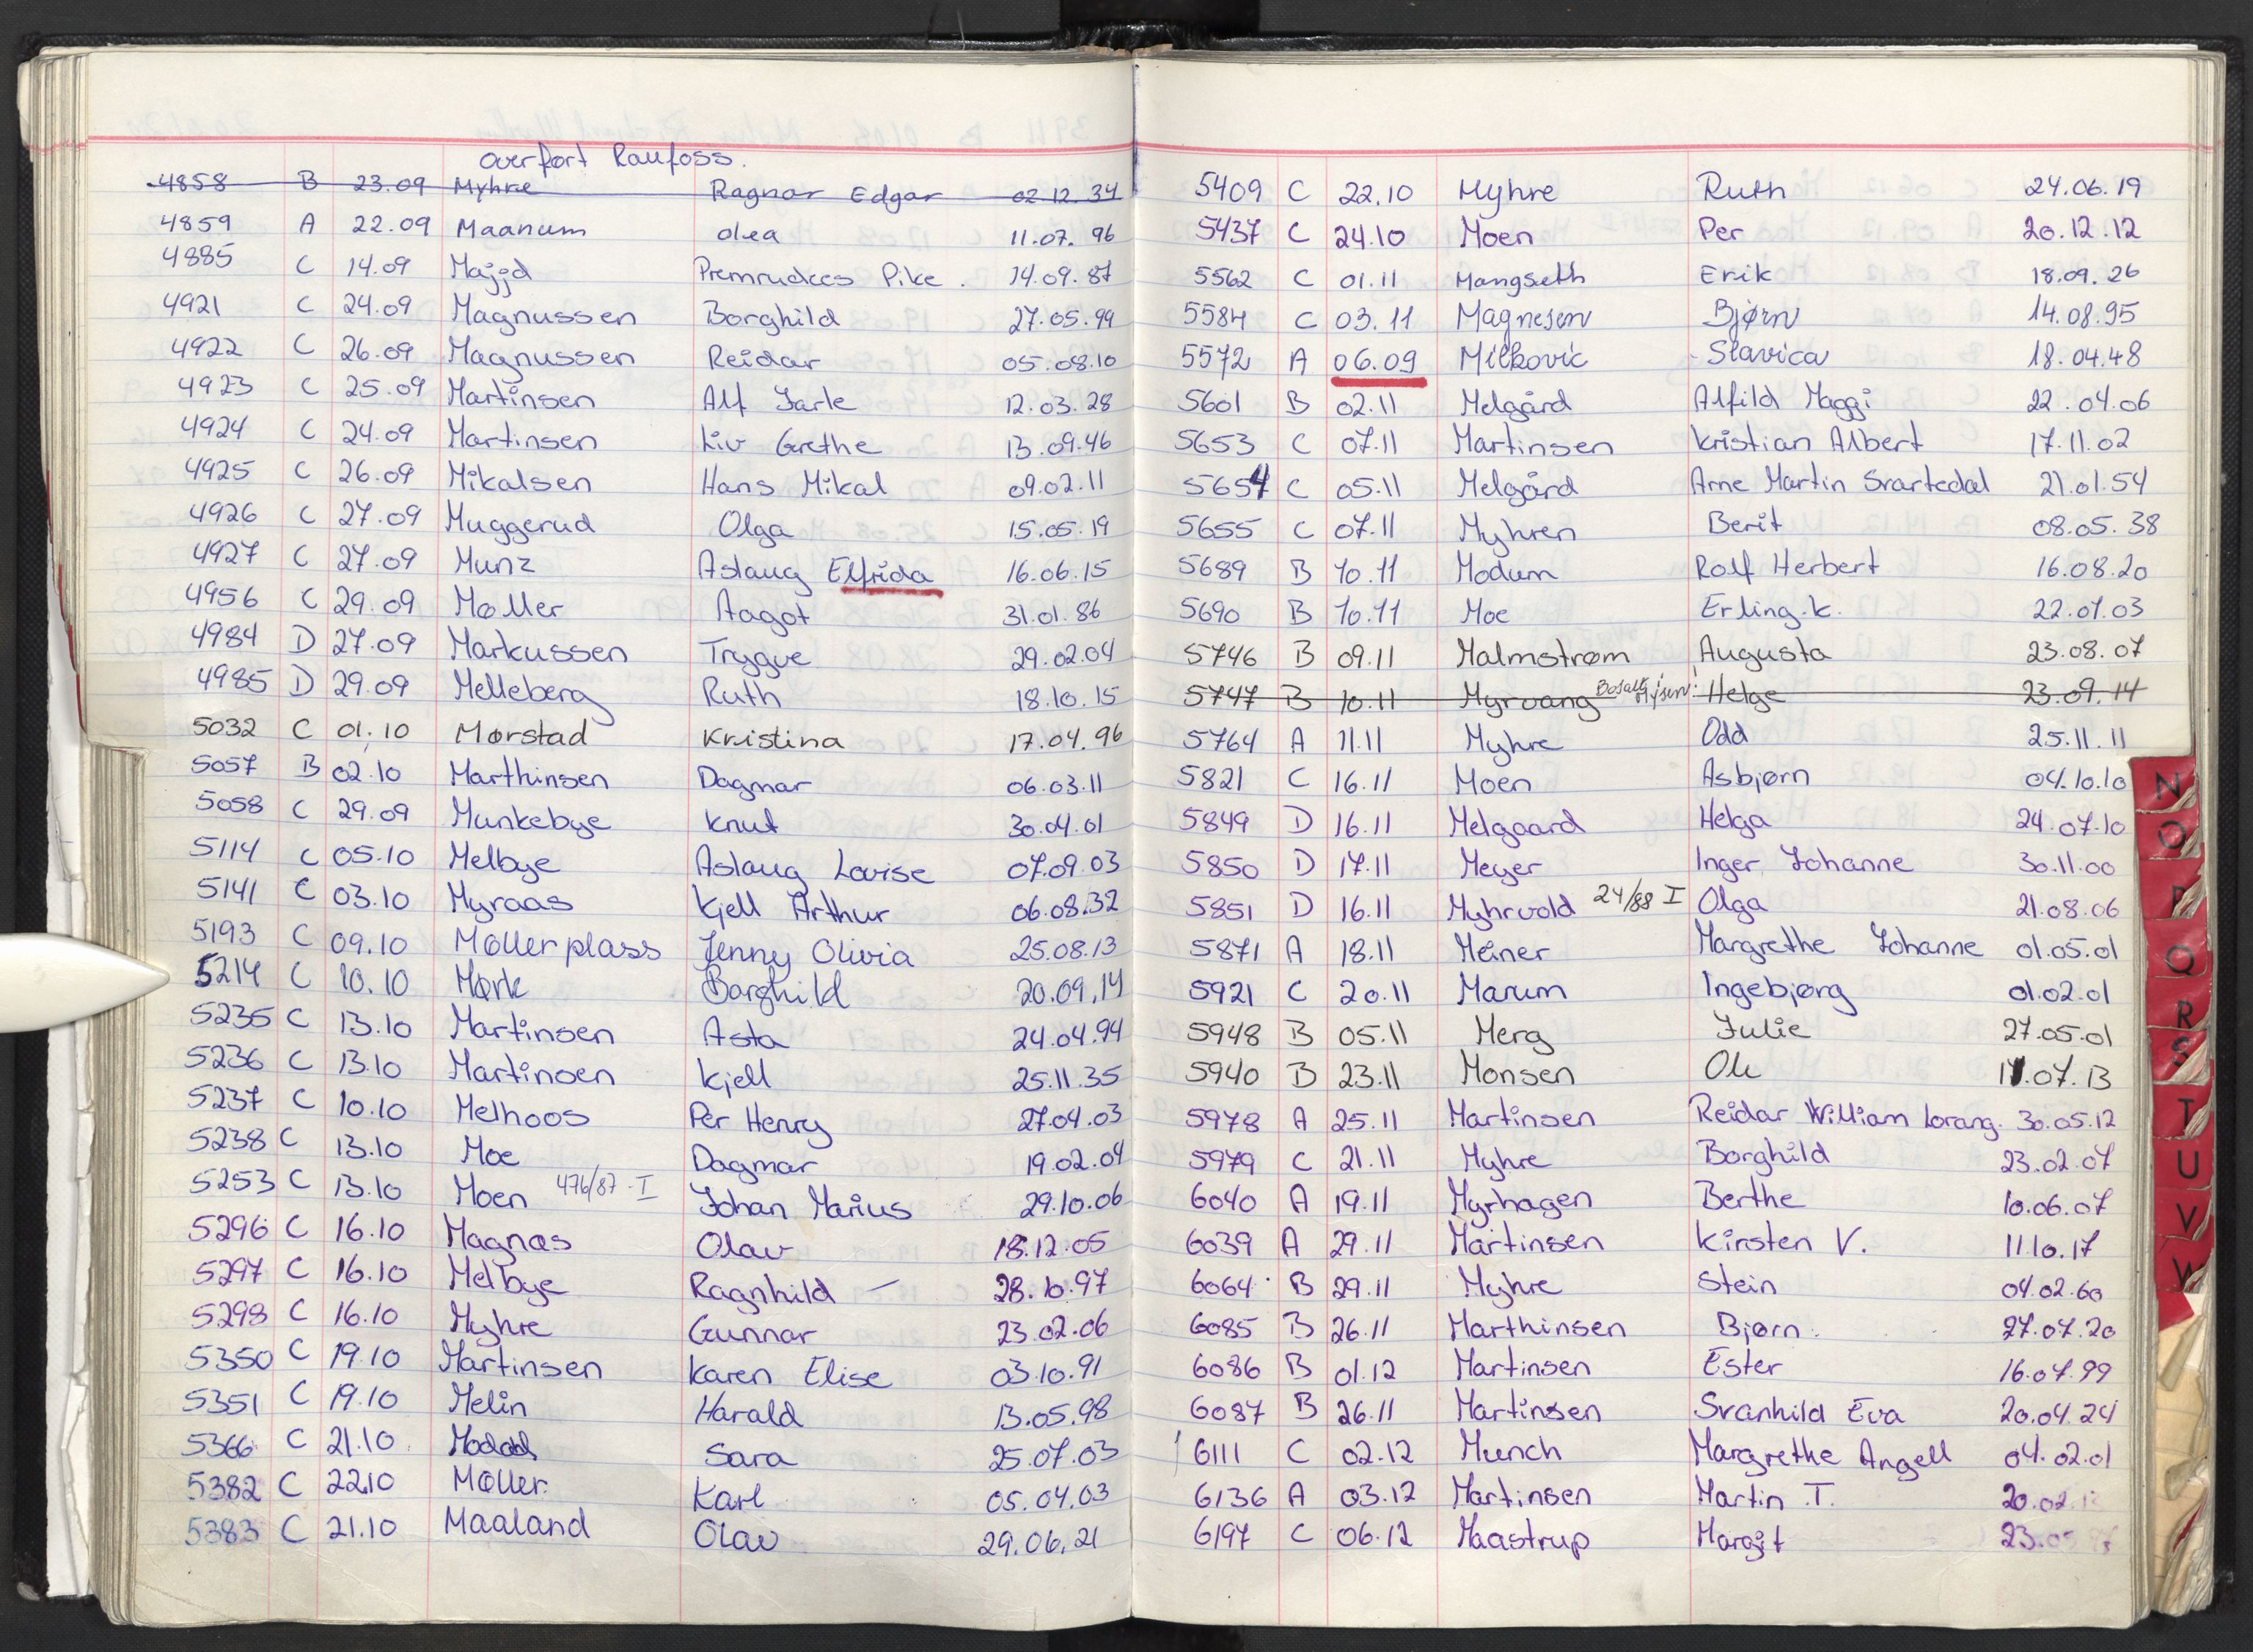 overført Raufoss.
4858 B 23.09 Myhre Ragnar Edgar 02.12.34
4859 A 22.09 Maanum Olea 11.07.96
4885 C 14.09 Majjd Pike. 14.09.87
4921 C 24.09 Magnussen Borghild 27.05.99
4922 C 26.09 Magnussen Reidar 05.08.10
4923 C 25.09 Martinsen Alf Jarle 12.03.28
4924 C 24.09 Martinsen Liv Grethe 13.09.46
4925 C 26.09 Mikalsen Hans Mikal 09.02.11
4926 C 27.09 Muggerud Olga 15.05.19
4927 C 27.09 Munz Aslaug Elfrida 16.06.15
4956 C 29.09 Møller Aagot 31.01.86
4984 D 27.09 Markussen Trygve 29.02.04
4985 D 29.09 Melleberg Ruth 18.10.15
5032 C 01.10 Mørstad Kristina 17.04.96
5057 B 02.10 Marthinsen Dagmar 06.03.11
5058 C 29.09 Munkebye Knut 30.04.01
5114 C 05.10 Melbye Aslaug Lovise 07.09.03
5141 C 03.10 Myraas Kjell Arthur 06.08.32
5193 C 09.10 Møllerplass Jenny Olivia 25.08.13
5214 C 10.10 Mørk Borghild 20.09.14
5235 C 13.10 Martinsen Asta 24.04.94
5236 C 13.10 Martinsen Kjell 25.11.35
5237 C 10.10 Melhoos Per Henry 27.04.03
5238 C 13.10 Moe Dagmar 19.02.04
5253 C 13.10 Moen 476/87-I Johan Marius 29.10.06
5296 C 16.10 Magnæs Olav 18.12.05
5297 C 16.10 Melbye Ragnhild - 28.10.97
5298 C 16.10 Myhre Gunnar 23.02.06
5350 C 19.10 Martinsen Karen Elise 03.10.91
5351 C 19.10 Melin Harald 13.05.98
5366 C 21.10 Sara 25.07.03
5382 C 22.10 Møller Karl 05.04.03
5383 C 21.10 Maaland Olav 29.06.21
5409 C 22.10 Myhre Ruth 24.06.19
5437 C 24.10 Moen Per 20.12.12
5562 C 01.11 Mangseth Erik 18.09.26
5584 C 03.11 Magnesen Bjørn 14.08.95
5572 A 06.09 Milkovic Slavica 18.04.48
5601 B 02.11 Melgård Alfild Maggi 22.04.06
5653 C 07.11 Martinsen Kristian Albert 17.11.02
5654 C 05.11 Melgård Arne Martin Svartedal 21.01.54
5655 C 07.11 Myhren Berit 08.05.38
5689 B 10.11 Modum Rolf Herbert 16.08.20
5690 B 10.11 Moe Erling K. 22.07.03
5746 B 09.11 Malmstrøm Augusta 23.08.07
5747 B 10.11 Myrvang Helge 23.09.14
5764 A 11.11 Myhre Odd 25.11.11
5821 C 16.11 Moen Asbjørn 04.10.10
5849 D 16.11 Melgaard Helga 24.07.10
5850 D 17.11 Meyer Inger Johanne 30.11.00
5851 D 16.11 Myhrvold 24/88 I Olga 21.08.06
5871 A 18.11 Meiner Margrethe Johanne 01.05.01
5921 C 20.11 Marum Ingebjørg 01.02.01
5948 B 05.11 Merg Julie 27.05.01
5940 B 23.11 Monsen Ole 17.07.13
5978 A 25.11 Martinsen Reidar William Lorang. 30.05.12
5979 C 21.11 Myhre Borghild 23.02.07
6040 A 19.11 Myrhagen Berthe 10.06.07
6039 A 29.11 Martinsen Kirsten V. 11.10.17
6064 B 29.11 Myhre Stein 04.02.60
6085 B 26.11 Marthinsen Bjørn 27.07.20
6086 B 01.12 Martinsen Ester 16.07.99
6087 B 26.11 Martinsen Svanhild Eva 20.04.24
6111 C 02.12 Munch Margrethe Angell 04.02.01
6136 A 03.12 Martinsen Martin T. 20.02.
6197 C 06.12 Maastrup Margit 23.05
N
O
P
Q
R
S
T
U
V
W